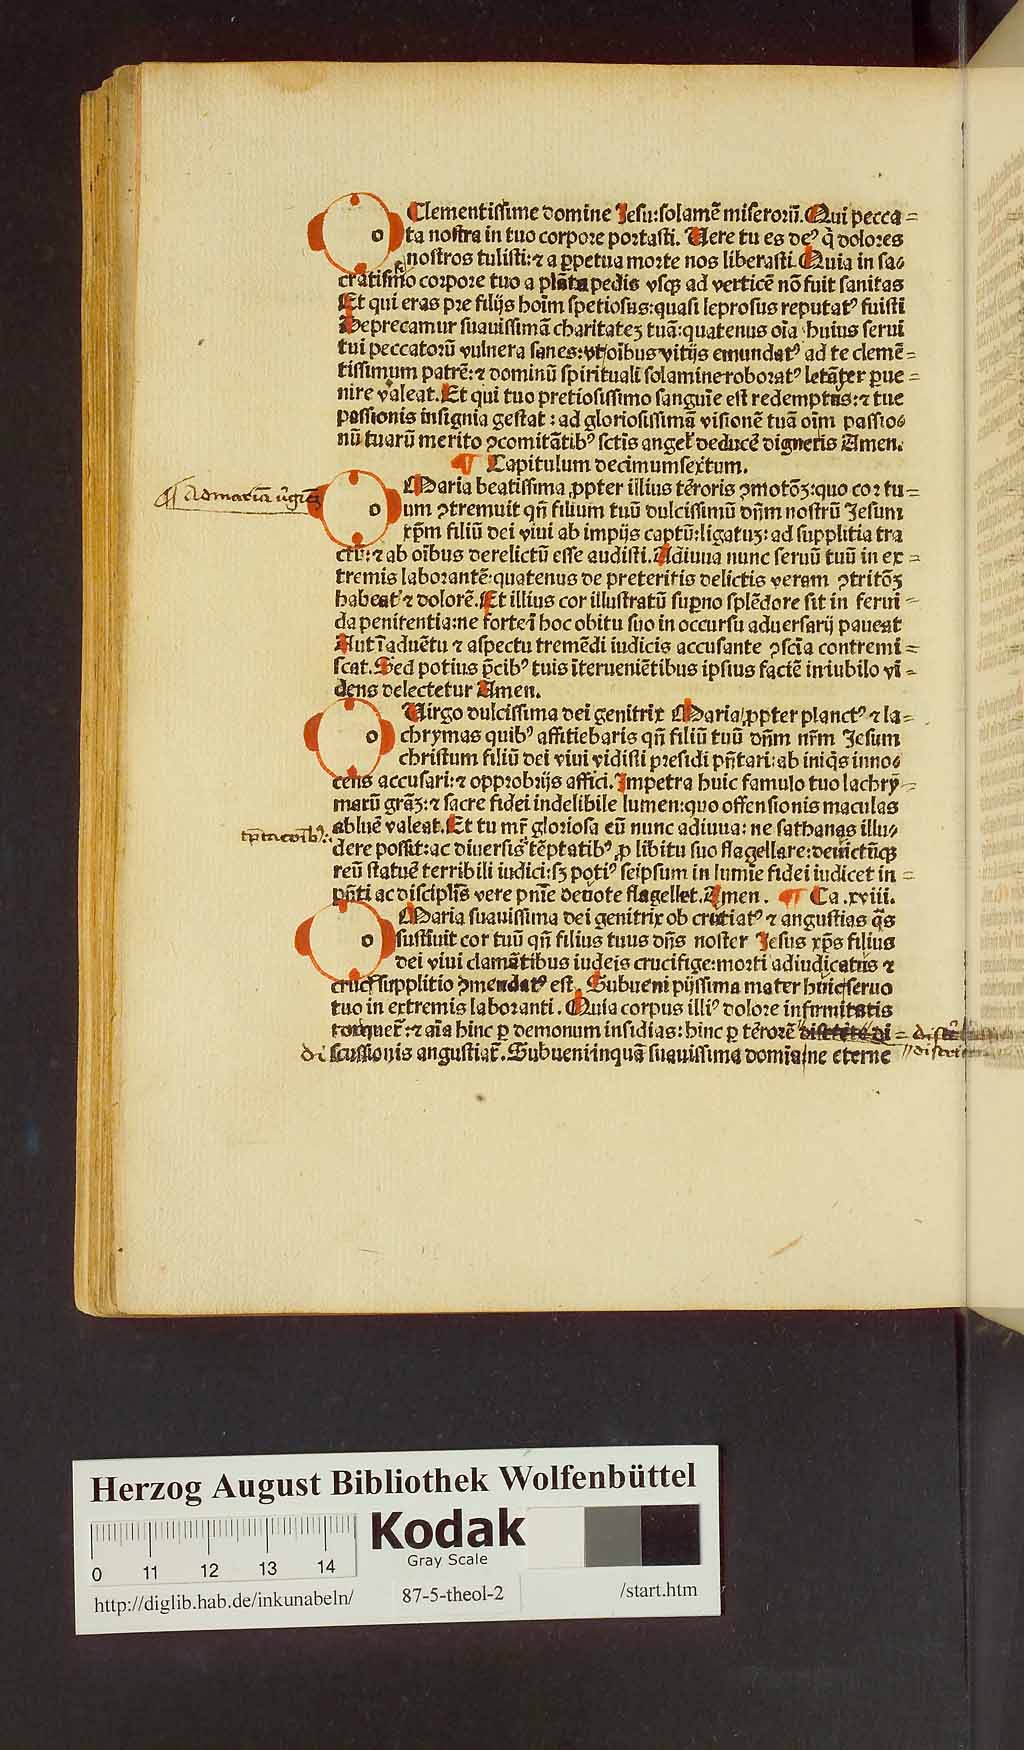 O Clementissime domine Jesu: solamē miserorū. Qui pecca=
ta nostra in tuo corpore portasti. Uere tu es deꝰ q̇ dolores
nostros tulisti: ⁊ a ꝑpetua morte nos liberasti. Quia in sa⸗
cratissimo corpore tuo a plāta pedis vsqꝫ ad verticē nō fuit sanitas
Et qui eras pre filijs hoīm spetiosus: quasi leprosus reputatꝰ fuisti
Deprecamur suauissimā charitateꝫ tuā: quatenus oīa huius serui
tui peccatorū vulnera sanes: vt oībus vitijs emundatꝰ ad te clemē=
tissimum patrē: ⁊ dominū spirituali solamine roboratꝰ letāter ꝑue=
nire valeat. Et qui tuo pretiosissimo sanguīe est redemptus: ⁊ tue
passionis insignia gestat: ad gloriosissimā visionē tuā oīm passio⸗
nū tuarū merito ꝯcomitātibꝰ sctīs angel' deducē digneris Amen.
¶ Capitulum decimumsextum.
¶ Ad mariā v̓ginē
O Maria beatissima ꝓpter illius tēroris ꝯmotōꝫ: quo cor tu=
um ꝯtremuit qn̄ filium tuū dulcissimū dn̄m nostrū Jesum
xp̄m filiū dei viui ab impijs captū: ligatuꝫ: ad supplitia tra
ctū: ⁊ ab oībus derelictū esse audisti. Adiuua nunc seruū tuū in ex=
tremis laborantē: quatenus de preteritis delictis veram ꝯtritōꝫ
habeat ⁊ dolorē. Et illius cor illustratū suꝑno splēdore sit in ferui=
da penitentia: ne forte ī hoc obitu suo in occursu aduersarij paueat
Aut ī aduētu ⁊ aspectu tremēdi iudicis accusante ꝯscīa contremi=
scat. Sed potius p̄cibꝰ tuis īterueniētibus ipsius faciē in iubilo vi=
dens delectetur Amen.
O Uirgo dulcissima dei genitrix Maria ꝓpter planctꝰ ⁊ la=
chrymas quibꝰ affitiebaris qn̄ filiū tuū dn̄m nr̄m Jesum
christum filiū dei viui vidisti presidi pn̄tari: ab iniq̇s inno⸗
cens accusari: ⁊ opprobrijs affici. Impetra huic famulo tuo lachry̅=
marū grāꝫ: ⁊ sacre fidei indelibile lumen: quo offensionis maculas
abluē valeat. Et tu mr̄ gloriosa eū nunc adiuua: ne sathanas illu⸗
tp̄tac̄oībꝰ:
dere possit: ac diuersis tēptatibꝰ ꝓ libitu suo flagellare: deuictūqꝫ
reū statuē terribili iudici: sꝫ potiꝰ seipsum in lumīe fidei iudicet in=
pn̄ti ac disciplīs vere pnīe deuote flagellet. Amen. ¶ Ca. xviii.
O Maria suauissima dei genitrix ob cruciatꝰ ⁊ angustias q̄s
sustinuit cor tuū qn̄ filius tuus dn̄s noster Jesus xp̄s filius
dei viui clamātibus iudeis crucifige: morti adiudicatus ⁊
crucis supplitio ꝯmendatꝰ est. Subueni pijssima mater huic seruo
tuo in extremis laboranti. Quia corpus illiꝰ dolore infirmitatis
torquet̄: ⁊ aīa hinc ꝑ demonum insidias: hinc ꝑ tērorē
di scussionis angustiat̄. Subueni inquā suauissima domīa: ne eterne
Herzog August Bibliothek Wolfenbüttel
Kodak
Gray Scale
0 11 12 13 14
http://diglib.hab.de/inkunabeln/ 87-5-theol-2 /start.htm